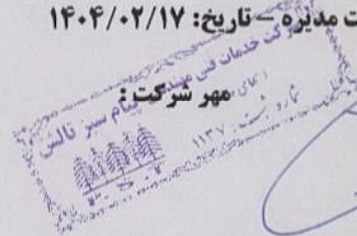 ت مدیره – تاریخ: ۱۴۰۴/۰۲/۱۷
مهر شرکت :
شرکت خدمات فنی مهندسی پیام سبز تالش
شماره ثبت: ۱۱۳۷